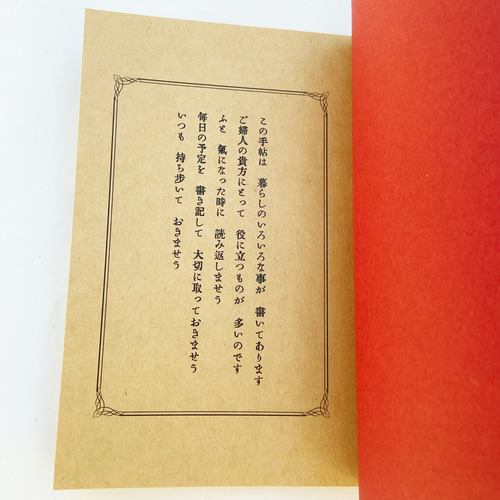 この手帖は 暮らしのいろいろな事が 書いてあります
ご婦人の貴方にとって 役に立つものが 多いのです
ふと 氣になった時に 読み返しませう
毎日の予定を 書き記して 大切に取っておきませう
いつも 持ち歩いて おきませう